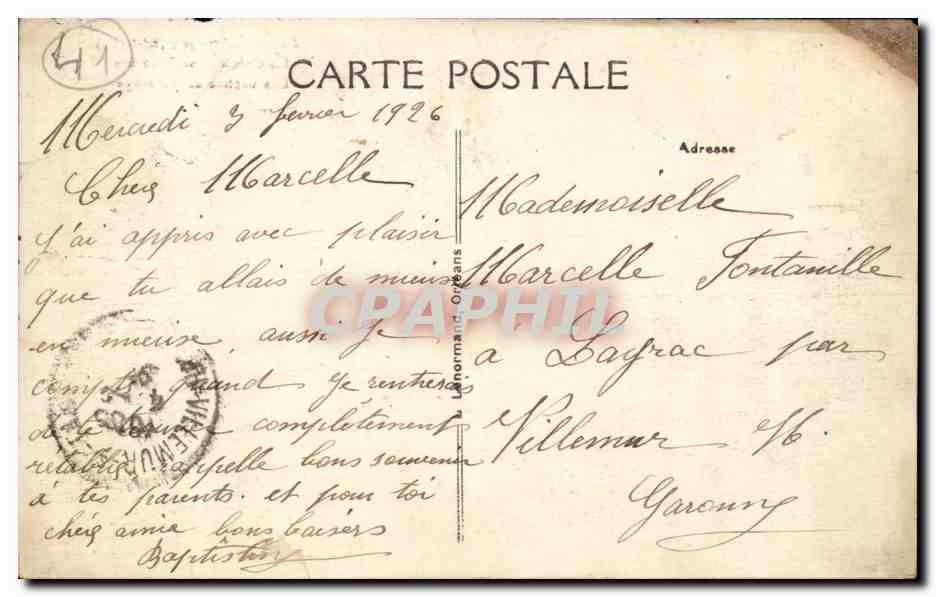 41
CARTE POSTALE
Mercredi 3 fevrier 1926
Chère Marcelle
J'ai appris avec plaisir
que tu allais de mieus
en mieuse, aussi je
compte quand je rentrerais
de te complètement
rétablie rappelle bons souvenir
à tes parents. et pour toi
chère amie bons baisers
Baptistin
Lenormand, Orléans
Adresse
Mademoiselle
Marcelle Fontanille
à Layrac par
Villemur H.
Garonne
VILLEMUR
CPAPHIL